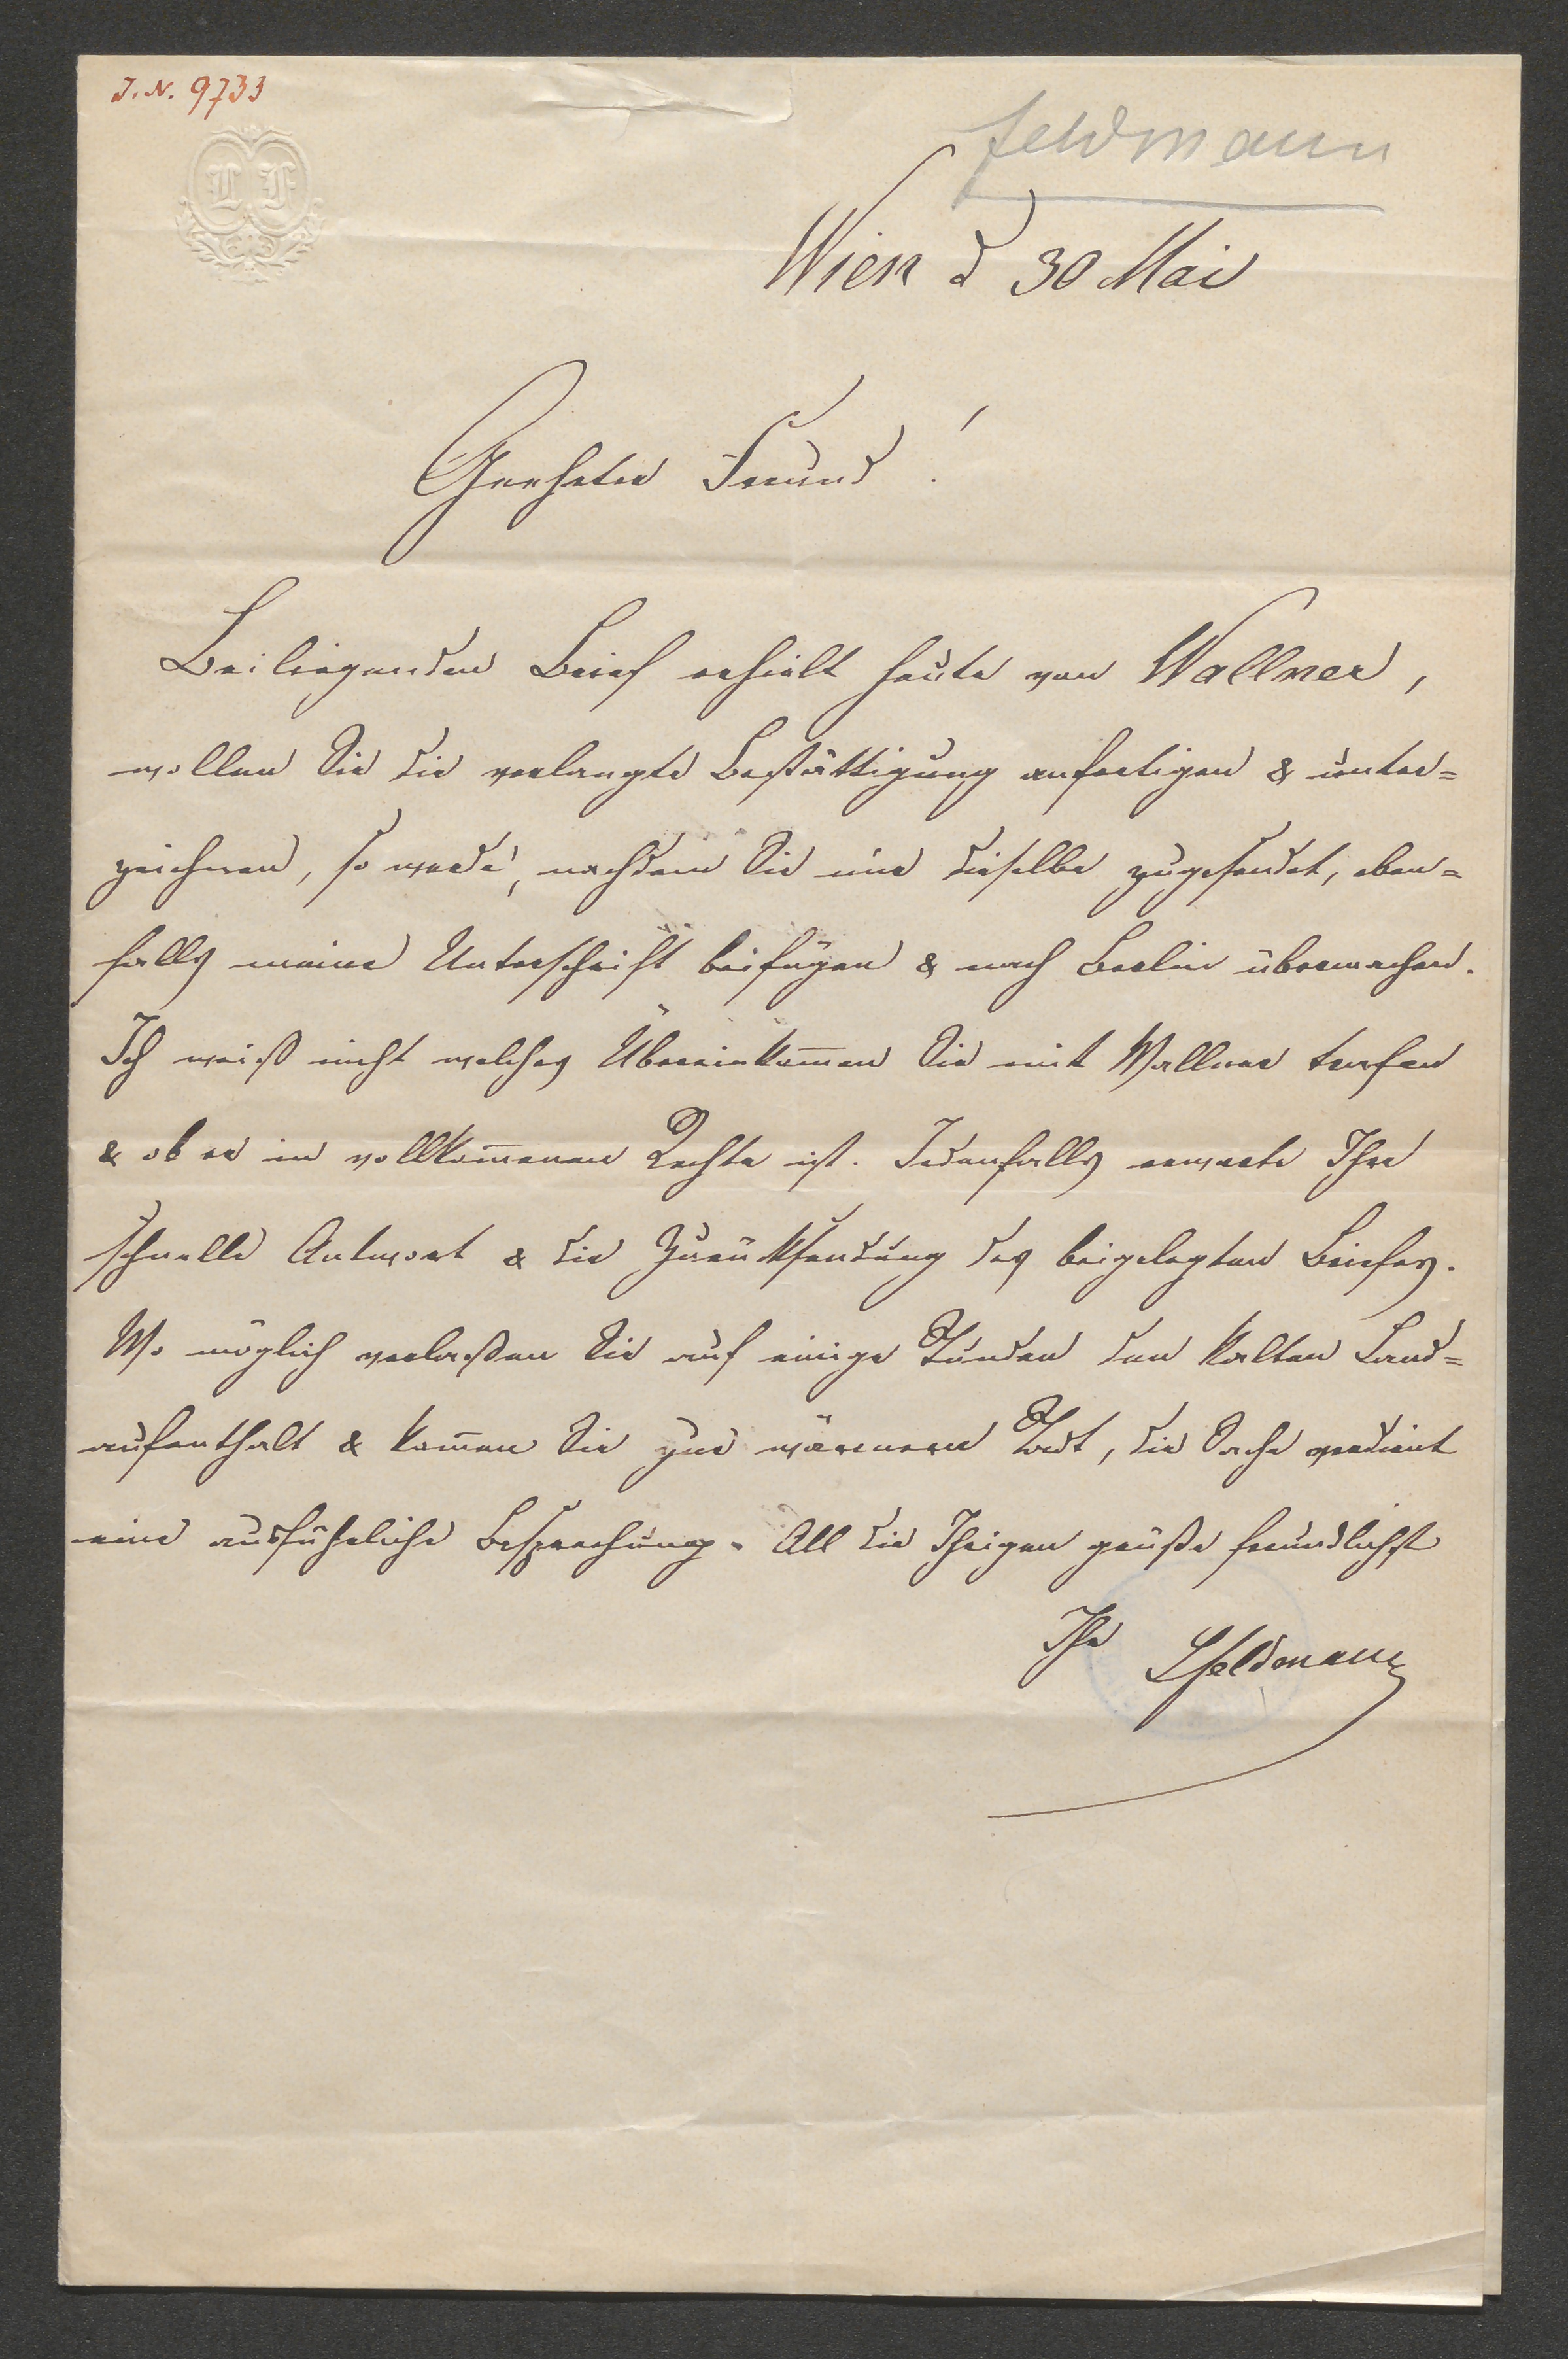 I. N. 9733
L F
Feldmann
Wien d 30 Mai
Geehrter Freund!
Beiliegenden Brief erhielt heute von Wallner,
wollen Sie die verlangte Bestättigung anfertigen & unter=
zeichnen, so werde, nachdem Sie mir dieselbe zugesendet, eben=
falls meine Unterschrift beifügen & nach Berlin übermachen.
Ich weiß nicht welches Übereinkom̅en Sie mit Wallner trafen
& ob er in vollkom̅enen Rechte ist. Jedenfalls erwarte Ihre
schnelle Antwort & die Zurüksendung des beigelegten Briefes.
Wo möglich verlaßen Sie auf einige Stunden den kalten Land=
aufenthalt & kom̅en Sie zur wärmeren Stadt, die Sache verdient
eine ausführliche Besprechung. All die Ihrigen grüße freundlichst
Ihr LFeldmann